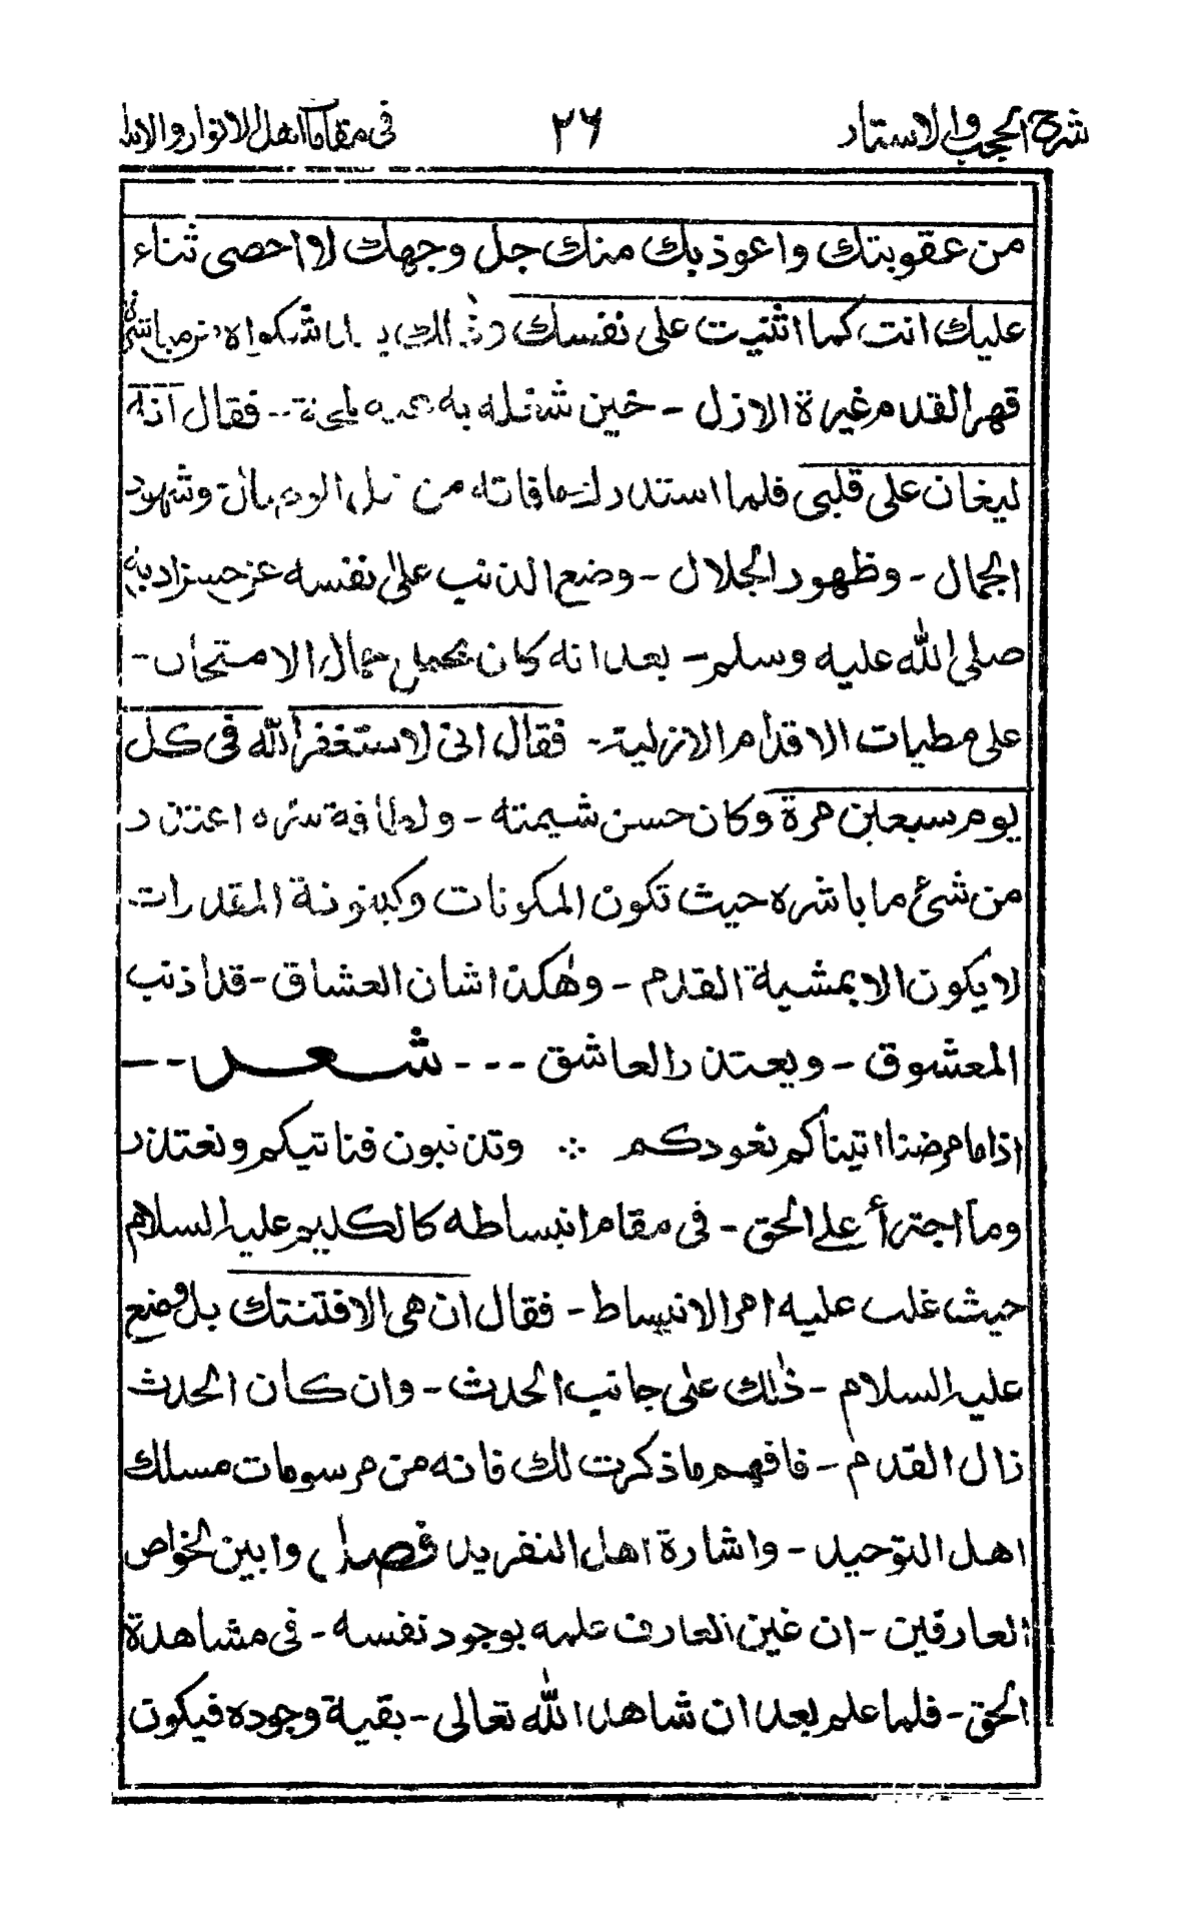 شرح الحجب والاستار
٢٦
فى مقامات اهل الانوار والا
من عقوبتك واعوذ بك منك جل وجهك لا احصى ثناء
عليك انت كما اثنيت على نفسك
قهر القدم غيرة الازل - حين شغله به فقال انه
ليغان على قلبى فلما استدرك ما فاته من وشهود
الجمال - وظهور الجلال - وضع الذنب على نفسه
صلى الله عليه وسلم - بعد انه كان يحمل جمال الامتحان -
على مطيات الاقدام الازلية - فقال انى لاستغفر الله فى كل
يوم سبعين مرة وكان حسن شيمته - ولطافة سره اعتذر
من شئ ما باشره حيث تكون المكونات وكينونة المقدرات
لا يكون الا بمشية القدم - وهكذا شان العشاق - قد اذنب
المعشوق - ويعتذر العاشق - - - شعر - -
اذا ما مرضنا اتيناكم نعودكم ∴ وتذنبون فناتيكم ونعتذر
وما اجترأ على الحق - فى مقام انبساطه كالكليم عليه السلام
حيث غلب عليه امر الانبساط - فقال ان هى الا فتنتك بل وضع
عليه السلام - ذلك على جانب الحدث - وان كان الحدث
زال القدم - فافهم ما ذكرت لك فانه من مرسومات مسلك
اهل التوحيد - واشارة اهل التفريد فصل وابين لخواص
العارفين - ان غين العارف علمه بوجود نفسه - فى مشاهدة
الحق - فلما علم بعد ان شاهد الله تعالى - بقية وجوده فيكون